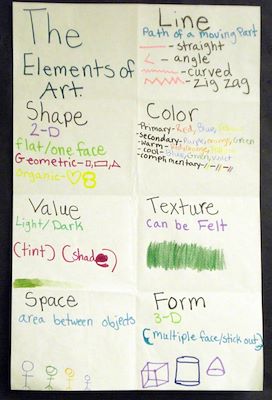 The
Elements of
Art.
Line
Path of a moving Part
- straight
- angle
- curved
- zig zag
Shape
2-D
flat/one face
Geometric-
organic-
Color
Primary- Red, Blue, Yellow
Secondary- Purple, orange, Green
warm- Red, orange, Yellow
cool- Blue, Green, Violet
complimentary-
Value
Light/Dark
(tint) (shade)
Texture
can be Felt
Space
area between objects
Form
3-D
(multiple face/stick out)